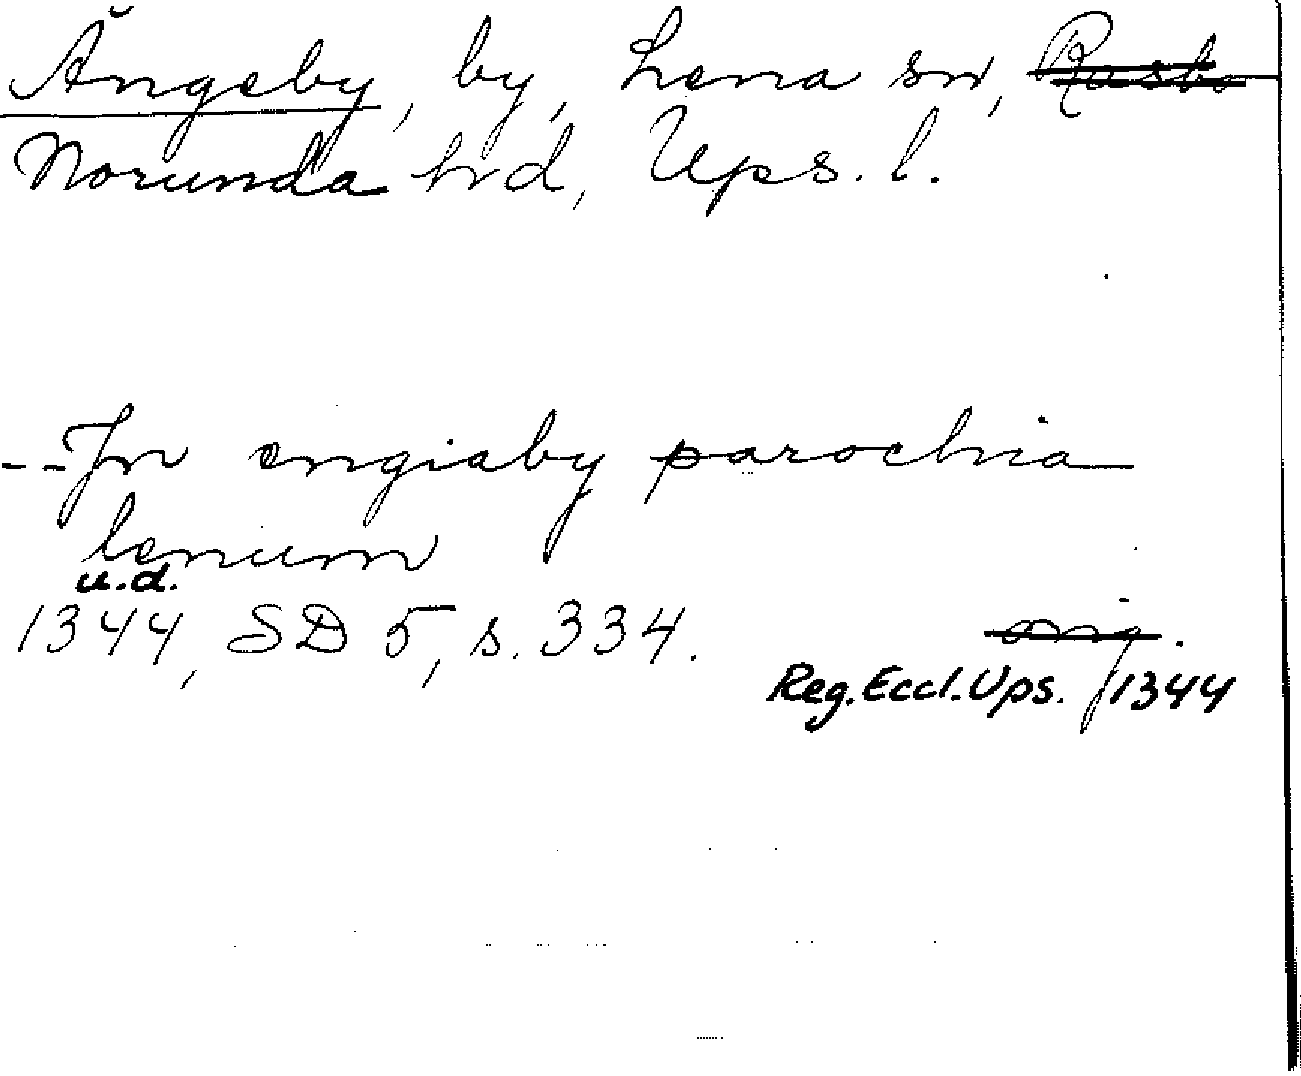 Ängeby, by, Lena sn, Rasbo
Norunda hd, Ups. l.
--Jn engiaby parochia
lenum
u.d.
1344, SD 5, s. 334. orig.
Reg. Eccl. Ups. 1344